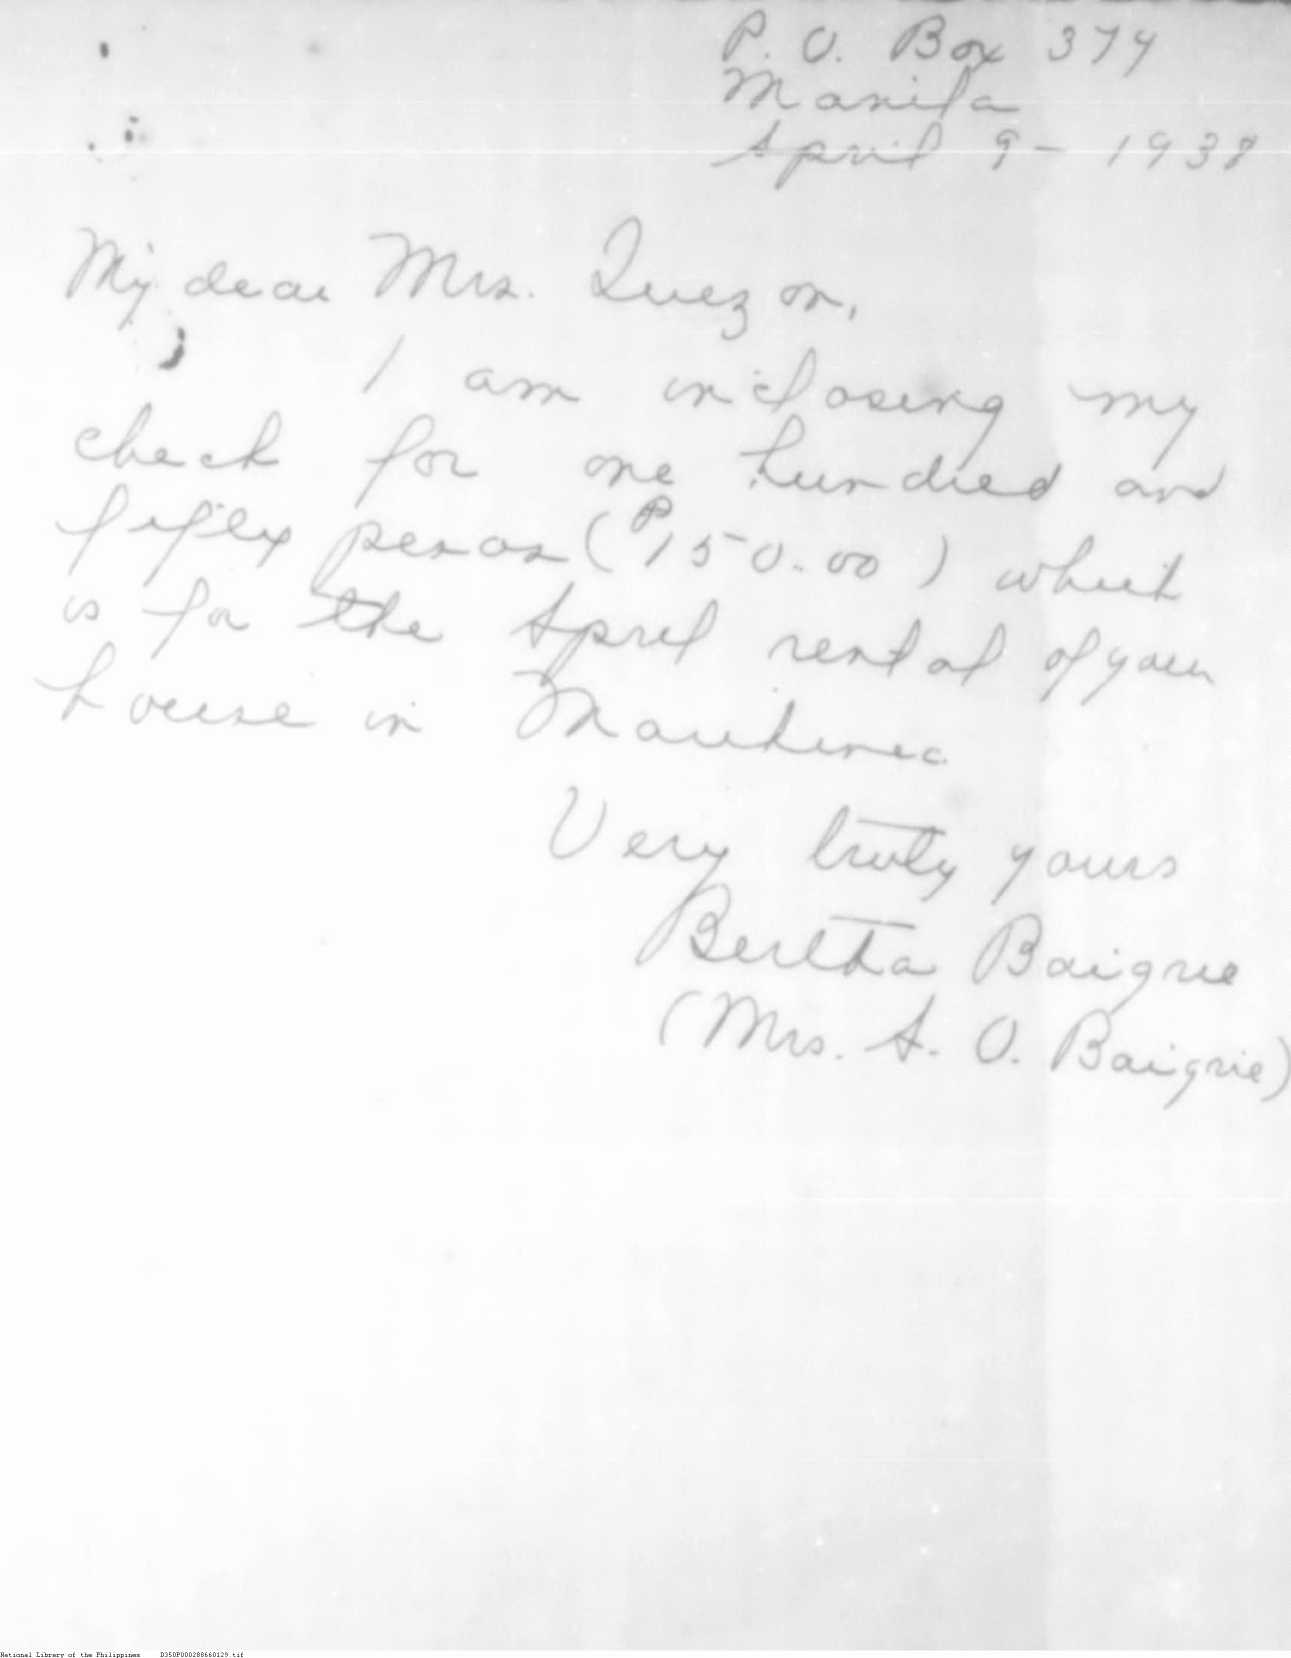 P. O. Box 374
Manila
April 9 - 1938
My dear Mrs. Quezon,
I am inclosing my
check for one hundred and
fifty pesos (₱150.00) which
is for the April rental of your
house in
Very truly yours
Bertha Baigrie
(Mrs. A. O. Baigrie)
National Library of the Philippines D350P000288660129.tif